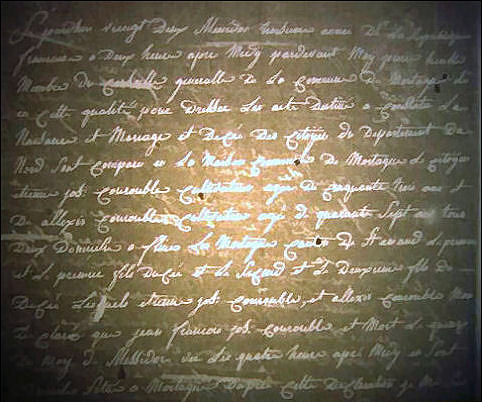 vingt Deux Messidor troisieme année De La Republique
francaise a Deux heure apre Midy pardevant Moy
Membre Du Conseille generalle De La Commune De Mortagne
en Cette qualité pour Dresser Les acte Destine a Constater Les
Naissance et Mariage et Deces Des Citoyens du Departement Du
Nord Sont Comparu en La Maison Commune De Mortagne Le Citoyen
etienne jos: Couvouble Cultivateur age De Cinquante trois ans et
De allexis Couvouble Cultivateur age De quarante Sept ans tous
Deux Domicilie a flines Les Mortagne Canton De St amand Le premier
et Le premier fils Du et Le Segond et Le Deuxieme fils Du
Lesquels etienne jos: Couvouble, et allexis Couvouble Mon
Declaré que jean francois jos: Couvouble et Mort Le quinze
Du Moy De Messidor a Les quatre heure apres Midy en Sont
a Mortagne Dapres Cette Declaration je Me Suis